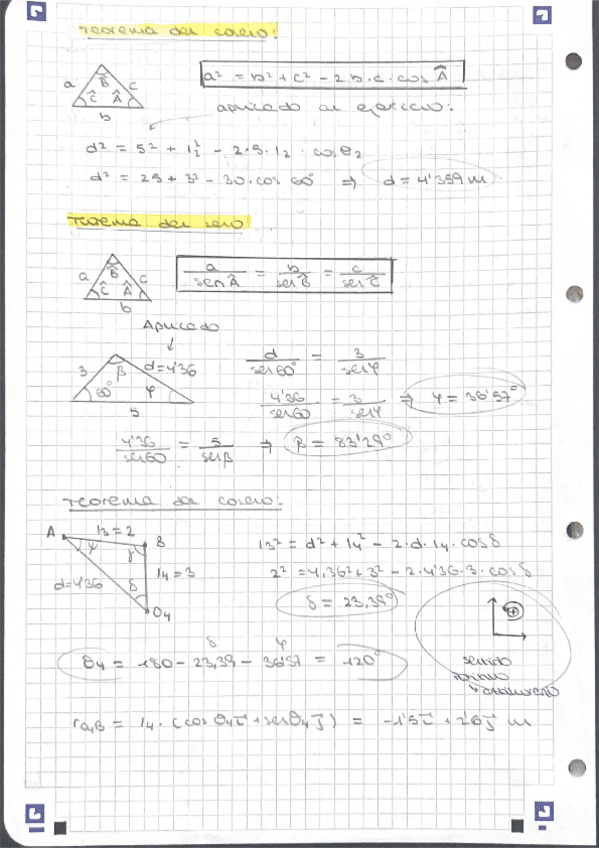 Teorema del coseno:
a² = b² + c² - 2·b·c·cos Â
a B̂ c
Ĉ Â
b
aplicado al ejercicio:
d² = 5² + l₂² - 2·5·l₂ · cosθ₂
d² = 25 + 3² - 30·cos 60° ⇒ d = 4'359 m
Teorema del seno
a B̂ c
Ĉ Â
b
a/sen Â = b/sen B̂ = c/sen Ĉ
Aplicado
3 β d=4'36
60° φ
5
d/sen60° = 3/senφ
4'36/sen60 = 3/senφ ⇒ φ = 36'57°
4'36/sen60 = 5/senβ ⇒ β = 83'29°
Teorema del coseno:
A l3 = 2 B
ψ γ
d=4'36 δ l4 = 3
O4
l3² = d² + l4² - 2·d·l4·cosδ
2² = 4,36² + 3² - 2·4'36·3·cosδ
δ = 23,39°
sentido
δ φ
θ4 = 180 - 23,39 - 36'57 = 120°
= l4 · (cosθ4 i⃗ + senθ4 j⃗) = -1'5 i⃗ + 2'6 j⃗ m